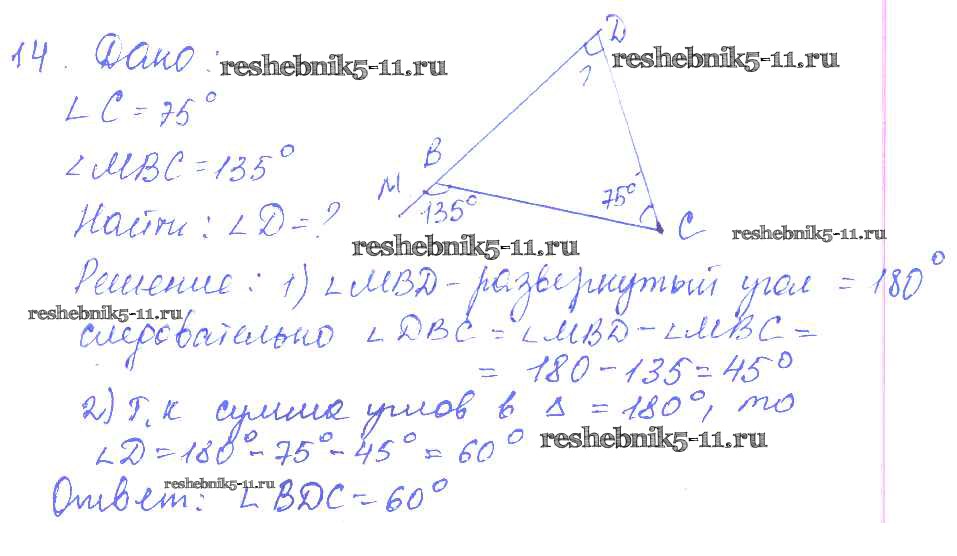 14. Дано:
reshebnik5-11.ru
∠C = 75°
∠MBC = 135°
Найти: ∠D = ?
D
reshebnik5-11.ru
?
B
M
135°
75°
C
reshebnik5-11.ru
reshebnik5-11.ru
Решение: 1) ∠MBD - развернутый угол = 180°
reshebnik5-11.ru
следовательно ∠DBC = ∠MBD - ∠MBC =
= 180 - 135 = 45°
2) Т.к сумма углов в Δ = 180°, то
∠D = 180° - 75° - 45° = 60°
reshebnik5-11.ru
reshebnik5-11.ru
Ответ: ∠BDC = 60°